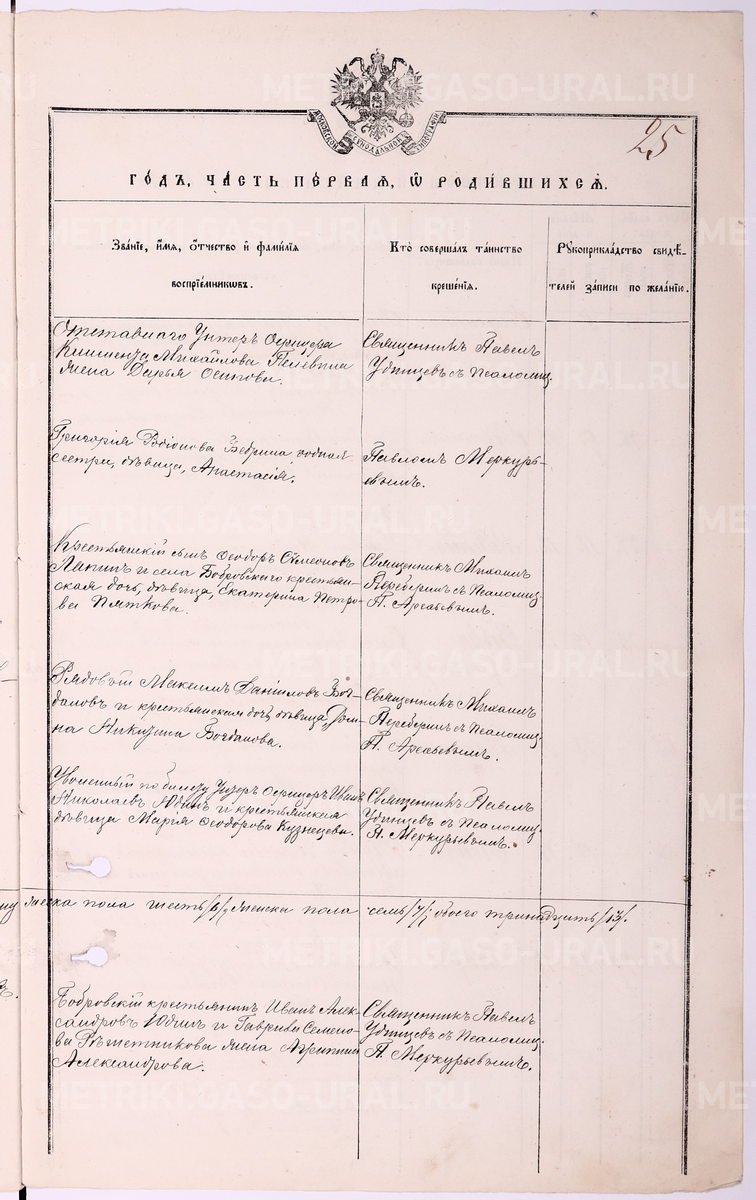 25
МОСКОВСКОЙ СѴНОДАЛЬНОЙ ТИПОГРАФІИ
ГО́ДЪ, ЧА́СТЬ ПЕ́РВАЯ, Ѡ҆ РОДИ́ВШИХСЯ.
Зва́нїе, и҆́мя, ѻ҆́тчество и҆ фами́лїя
воспрїе́мникѡвъ.
Кто̀ соверша́лъ та́инство
креще́нїя.
Рꙋкоприкла́дство свидѣ́-
телей за́писи по жела́нїю.
Отставнаго Унтеръ Офицера
Климента Михайлова Пелевина
жена Дарья Осипова.
Священникъ Павелъ
Удинцевъ съ Псаломщ.
Григорія Родіонова Бебрина родная
сестра, дѣвица, Анастасія.
Павломъ Меркурь-
евымъ.
Крестьянскій сынъ Ѳеодоръ Сѵмеоновъ
Лапинъ и села Бобровскаго крестьян-
ская дочь, дѣвица, Екатерина Петро-
ва Пяткова.
Священникъ Михаилъ
съ Псаломщ.
П. Арефьевымъ.
Рядовой Максимъ Даніиловъ Бог-
дановъ и крестьянская дочь, дѣвица, Дом-
на Никитина Богданова.
Священникъ Михаилъ
съ Псаломщ.
П. Арефьевымъ.
Уволенный по билету Унтеръ Офицеръ Иванъ
Николаевъ Юдинъ и крестьянская
дѣвица Марія Ѳеодорова Кузнецова.
Священникъ Павелъ
Удинцевъ съ Псаломщ.
П. Меркурьевымъ.
мужеска пола шесть /6/, женска пола семь /7/; обоего тринадцать /13/.
Бобровскій крестьянинъ Иванъ Алек-
сандровъ Юдинъ и Гавриила Семено-
ва Рѣшетникова жена Агриппина
Александрова.
Священникъ Павелъ
Удинцевъ съ Псаломщ.
П. Меркурьевымъ.
METRIKI.GASO-URAL.RU